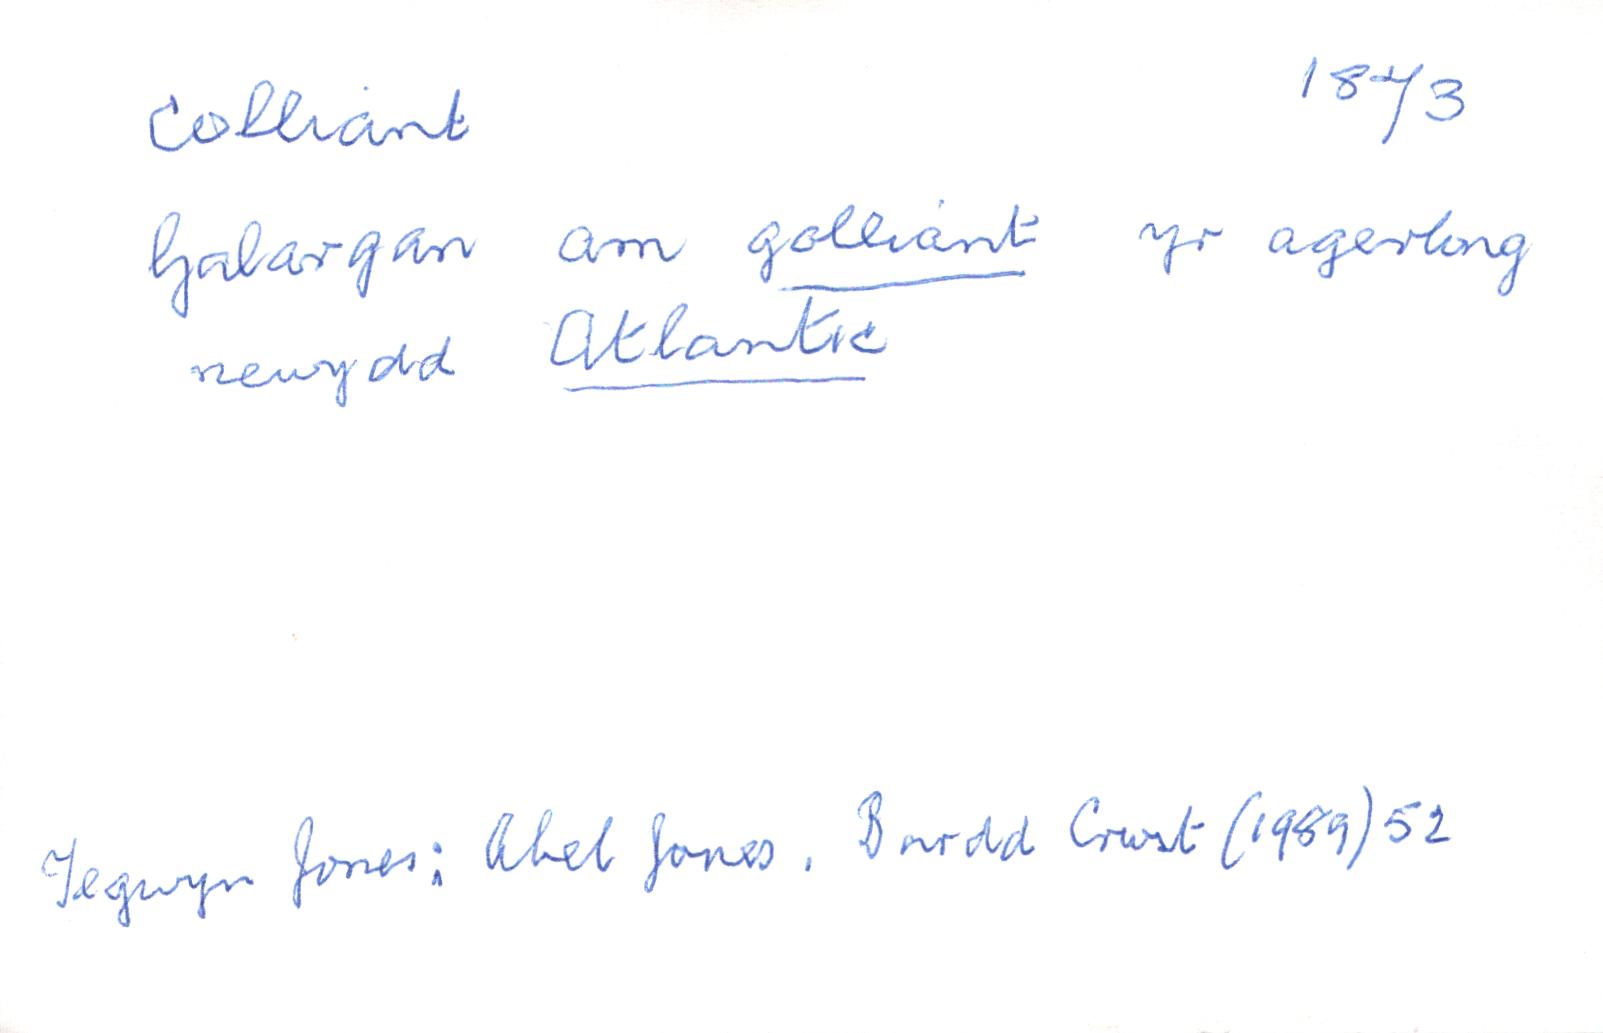 Colliant 1873
Galargan am golliant yr agerlong
newydd Atlantic
Tegwyn Jones: Abel Jones, Bardd Crwst (1989) 52